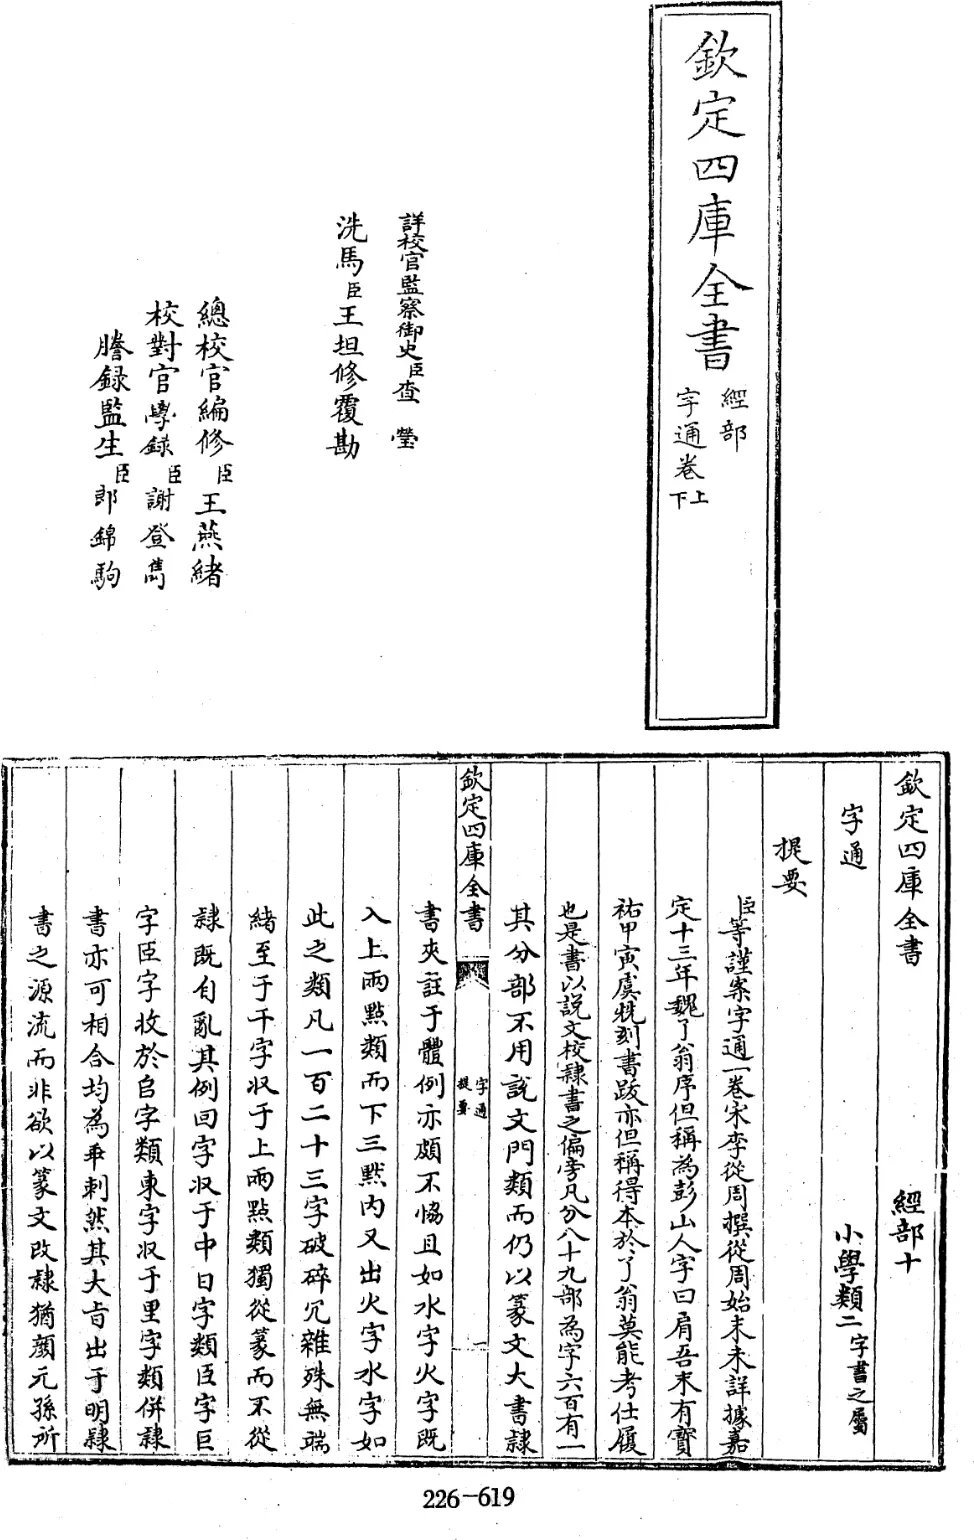 欽定四庫全書
經部
字通卷上下
詳校官監察御史臣查瑩
洗馬臣王坦修覆勘
總校官編修臣王燕緒
校對官學錄臣謝登雋
謄録監生臣郎錦駒
欽定四庫全書
經部十
字通
小學類二字書之屬
提要
臣等謹案字通一卷宋李從周撰從周始末未詳據嘉
定十三年魏了翁序但稱為彭山人字曰肩吾末有寳
祐甲寅虞兟刻書跋亦但稱得本於了翁莫能考仕履
也是書以説文校隸書之偏旁凡分八十九部為字六百有一
其分部不用説文門類而仍以篆文大書隸
欽定四庫全書
字通
提要
一
書夾註于體例亦頗不愜且如水字火字既
入上兩㸃類而下三㸃内又出火字水字如
此之類凡一百二十三字破碎冗雜殊無端
緒至于干字収于上兩㸃類獨從篆而不從
隸既自亂其例回字収于中日字類臣字巨
字𦣞字收於㠯字類東字収于里字類併隸
書亦可相合均為乖刺然其大旨出于明隸
書之源流而非欲以篆文改隸猶顔元孫所
226-619